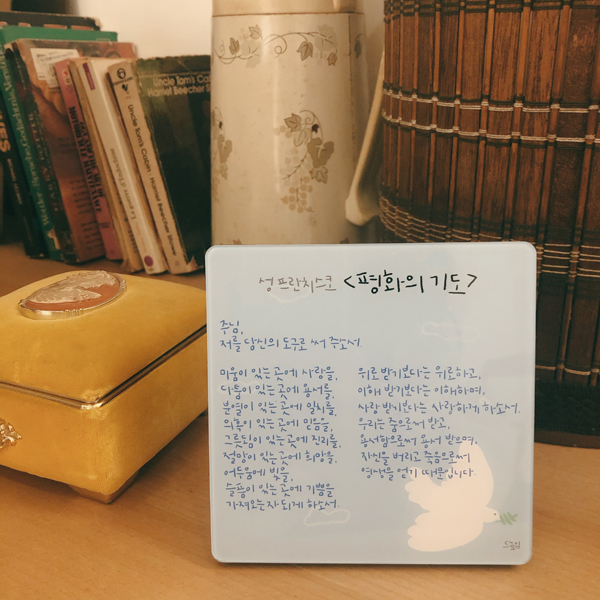 Uncle Tom's Cabin
Harriet Beecher
Uncle Tom's Cabin • Harriet Beecher Stowe
성 프란치스코 <평화의 기도>
주님,
저를 당신의 도구로 써 주소서.
미움이 있는 곳에 사랑을,
다툼이 있는 곳에 용서를,
분열이 있는 곳에 일치를,
의혹이 있는 곳에 믿음을,
그릇됨이 있는 곳에 진리를,
절망이 있는 곳에 희망을,
어두움에 빛을,
슬픔이 있는 곳에 기쁨을
가져오는 자 되게 하소서.
위로받기보다는 위로하고,
이해받기보다는 이해하며,
사랑받기보다는 사랑하게 하소서.
우리는 줌으로써 받고,
용서함으로써 용서 받으며,
자신을 버리고 죽음으로써
영생을 얻기 때문입니다.